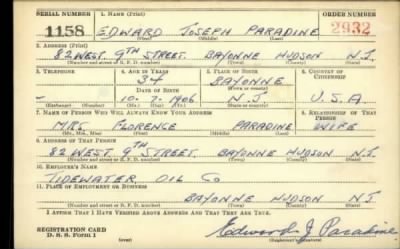 SERIAL NUMBER 1. NAME (Print) ORDER NUMBER
1158 EDWARD JOSEPH PARADINE 2932
(First) (Middle) (Last)
2. ADDRESS (Print)
82 WEST 9TH STREET. BAYONNE HUDSON N.J.
(Number and street or R. F. D. number) (Town) (County) (State)
3. TELEPHONE 4. AGE IN YEARS 5. PLACE OF BIRTH 6. COUNTRY OF CITIZENSHIP
34 BAYONNE
DATE OF BIRTH (Town or county)
— 10-7-1906 N.J. U.S.A
(Exchange) (Number) (Mo.) (Day) (Yr.) (State or country)
7. NAME OF PERSON WHO WILL ALWAYS KNOW YOUR ADDRESS 8. RELATIONSHIP OF THAT PERSON
MRS FLORENCE PARADINE WIFE
(Mr., Mrs., Miss) (First) (Middle) (Last)
9. ADDRESS OF THAT PERSON
82 WEST 9TH STREET. BAYONNE HUDSON N.J.
(Number and street or R. F. D. number) (Town) (County) (State)
10. EMPLOYER'S NAME
TIDEWATER OIL CO
11. PLACE OF EMPLOYMENT OR BUSINESS
BAYONNE HUDSON N.J.
(Number and street or R. F. D. number) (Town) (County) (State)
I AFFIRM THAT I HAVE VERIFIED ABOVE ANSWERS AND THAT THEY ARE TRUE.
REGISTRATION CARD
D. S. S. Form 1 (over) Edward J. Paradine
(Registrant's signature)